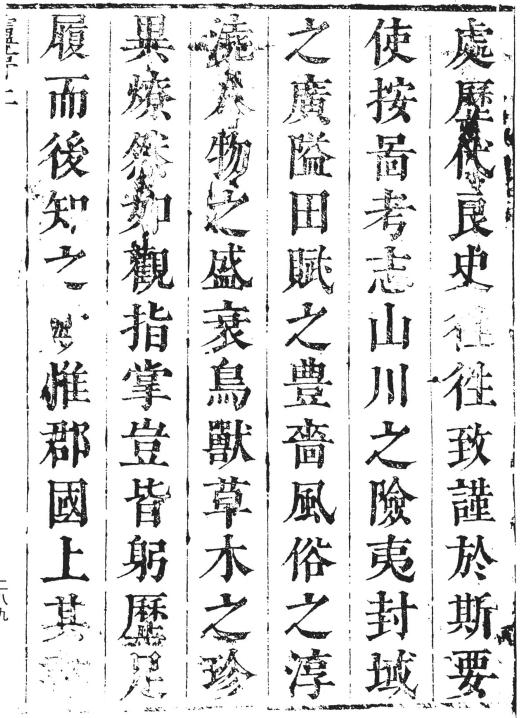 處歷代良史徃徃致謹於斯要
使按啚考志山川之險夷封域
之廣隘田賦之豊嗇風俗之淳
澆人物之盛衰鳥獸草木之珍
異燎然如觀指掌豈皆躬歷足
履而後知之惟郡國上其
二八九